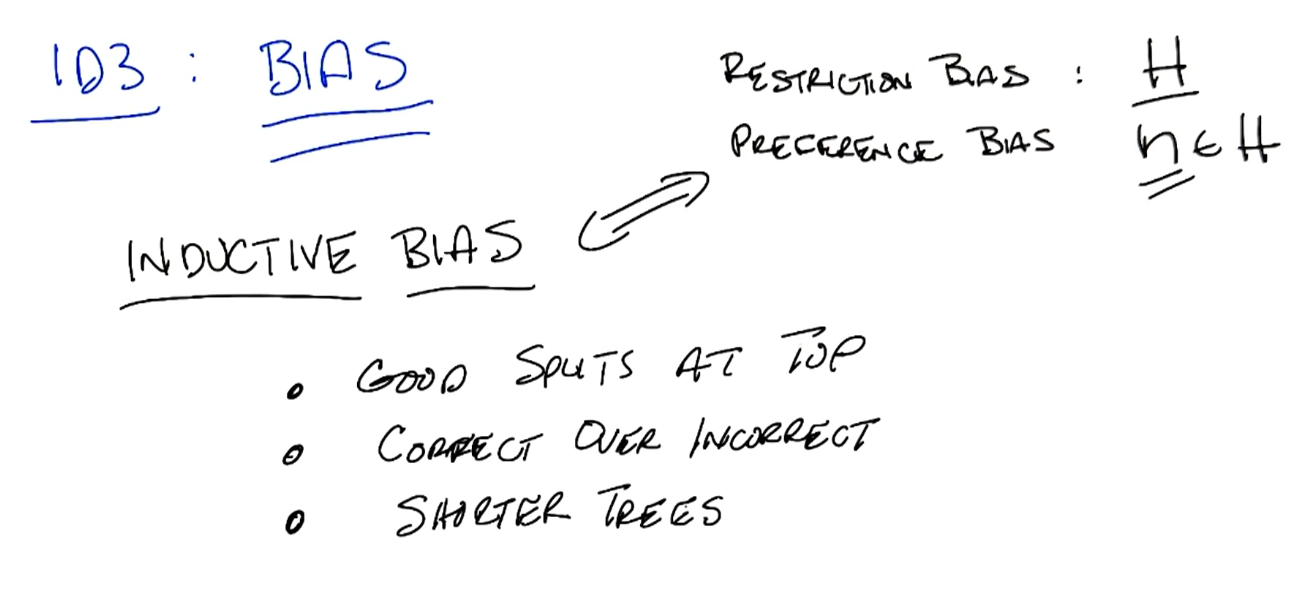 ID3 : BIAS
RESTRICTION BIAS : H
PREFERENCE BIAS n ∈ H
INDUCTIVE BIAS
• GOOD SPLITS AT TOP
• CORRECT OVER INCORRECT
• SHORTER TREES